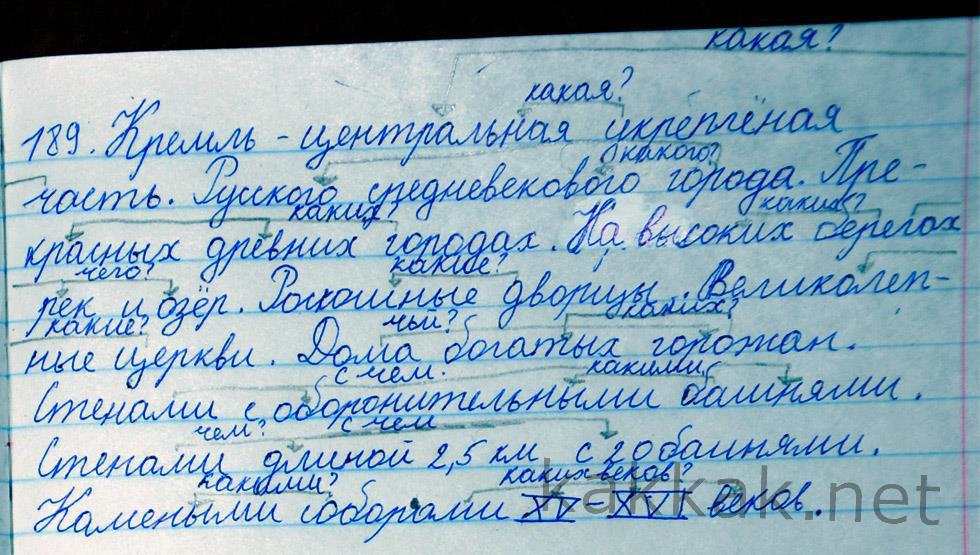 какая?
какая?
189. Кремль - центральная укреплёная
какого?
часть. Русского средневекового города. Пре-
каких? каких?
красных древних городах. На высоких берегах
чего? какие?
рек и озёр. Роскошные дворцы. Великолеп-
какие? чьи? каких?
ные церкви. Дома богатых горожан.
с чем. какими
Стенами с оборонительными башнями.
чем? с чем
Стенами длиной 2,5 км с 20 башнями.
какими? каких веков?
Камеными соборами XV - XVI веков.
kakkak.net